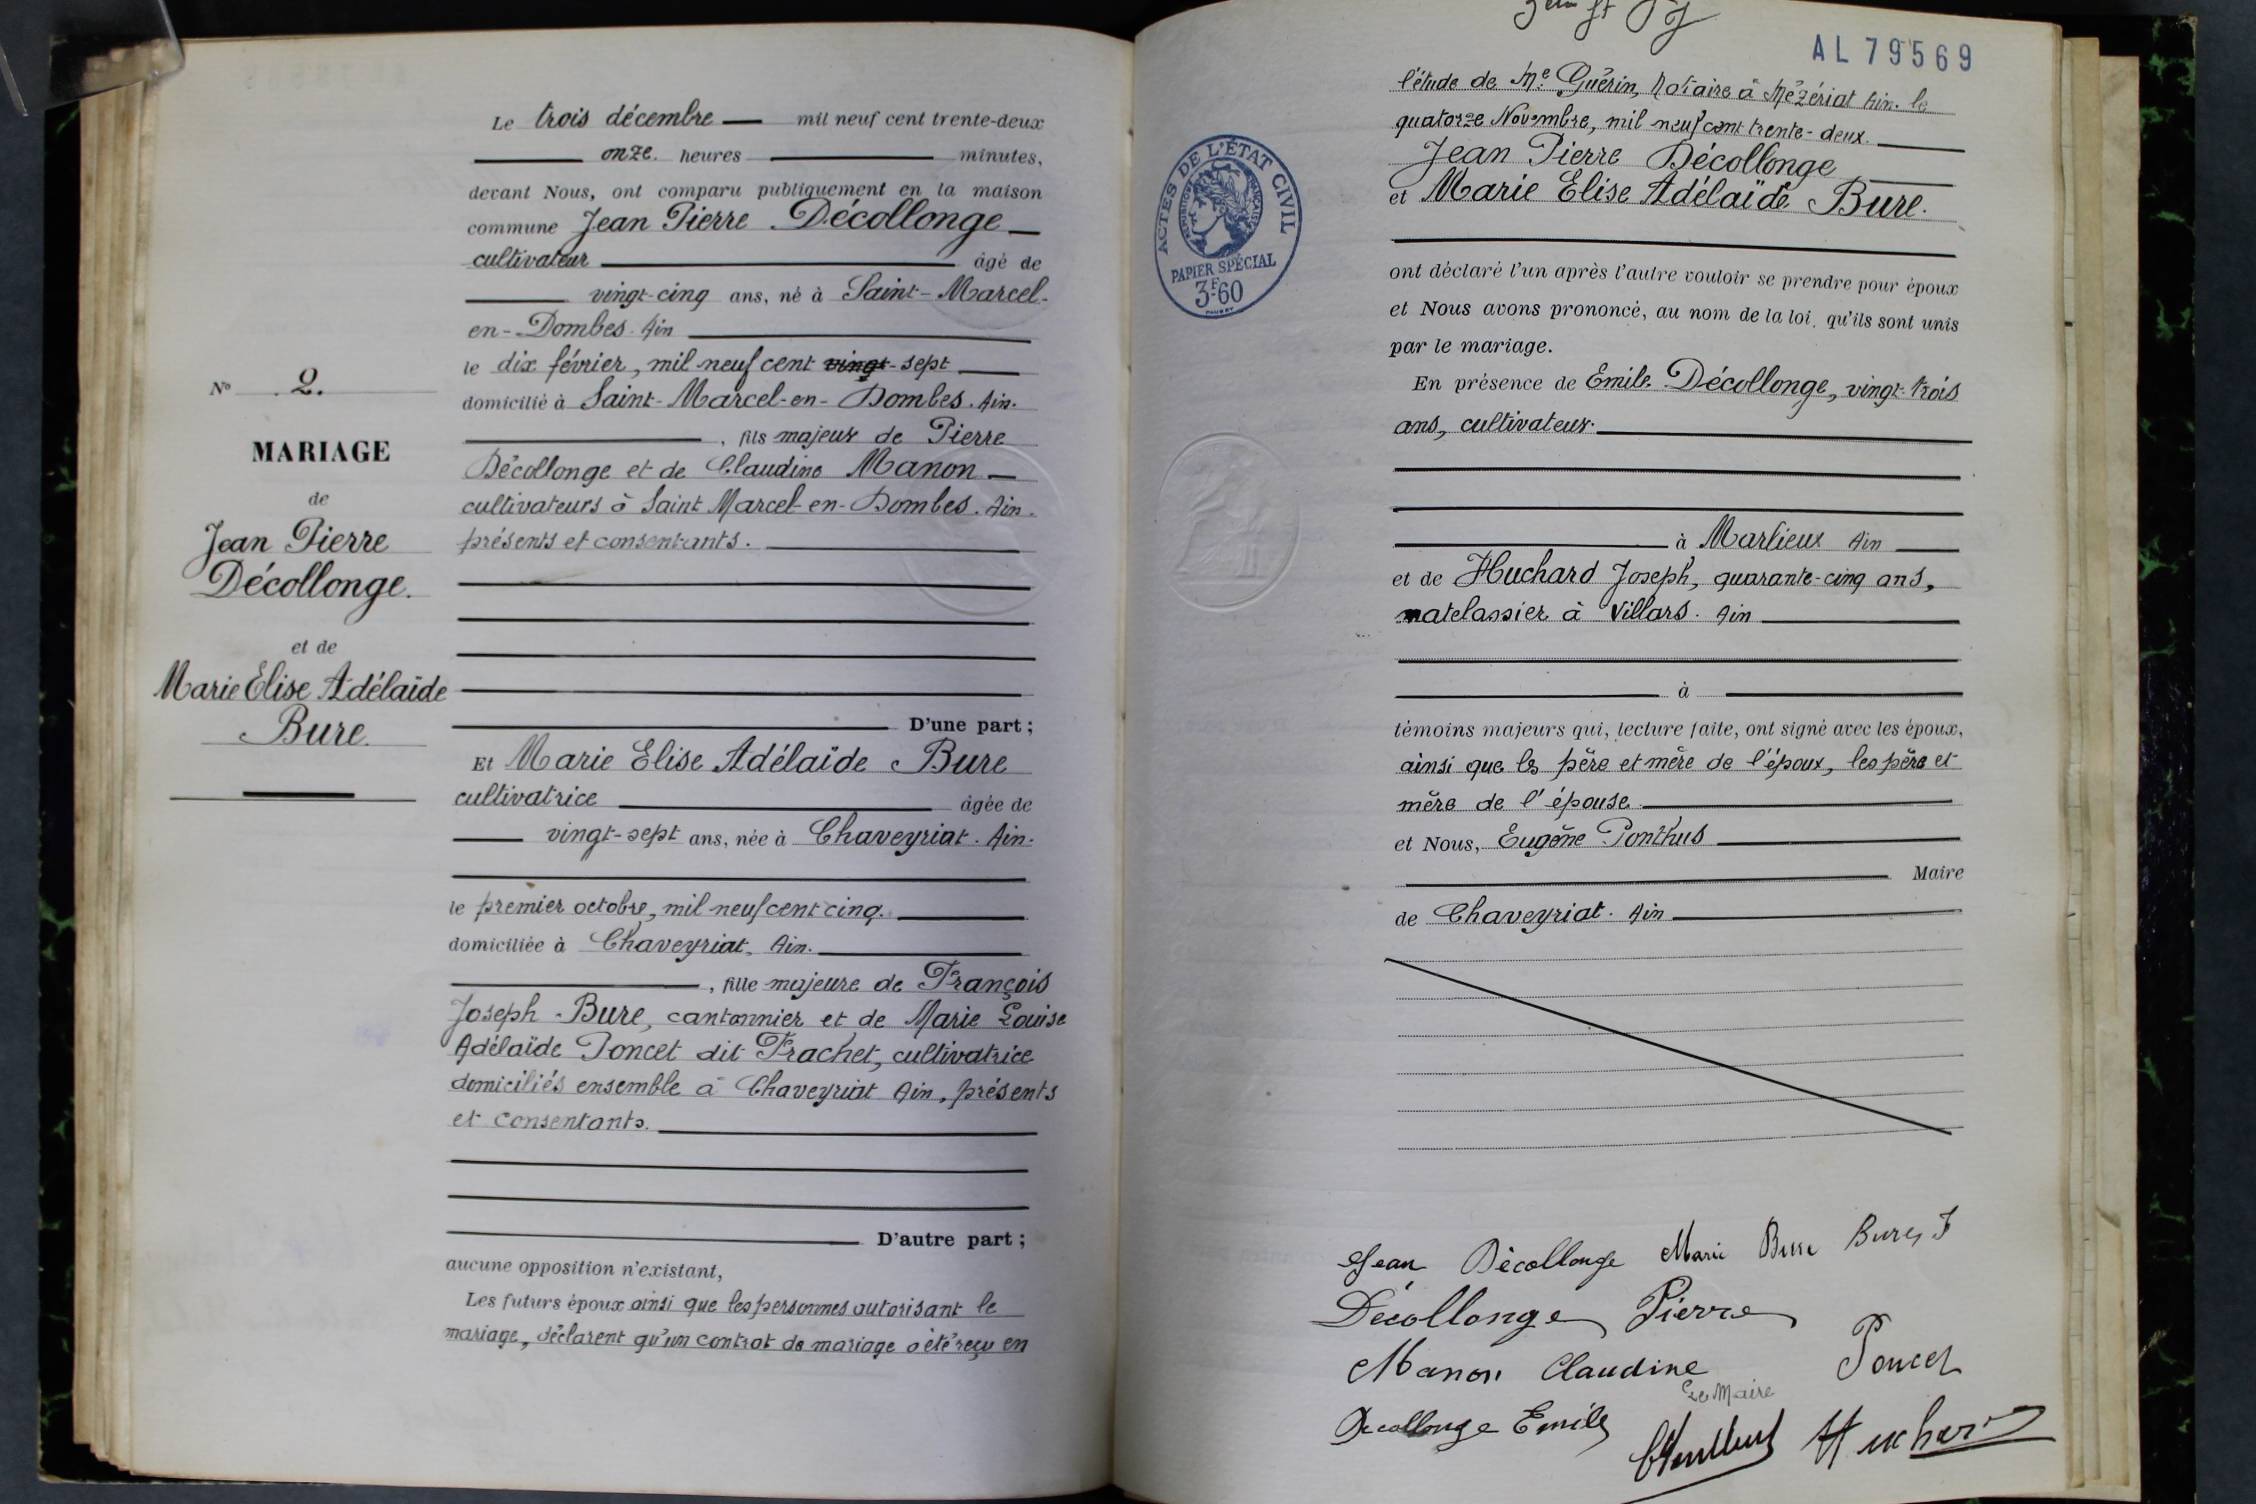 Le trois décembre mil neuf cent trente-deux
onze heures minutes,
devant Nous, ont comparu publiquement en la maison
commune Jean Pierre Décollonge
cultivateur âgé de
vingt-cinq ans, né à Saint-Marcel-
en-Dombes. Ain
le dix février, mil neuf cent vingt-sept
domicilié à Saint-Marcel-en-Dombes. Ain.
, fils majeur de Pierre
Décollonge et de Claudine Manon
cultivateurs à Saint Marcel-en-Dombes. Ain.
présents et consentants.
D'une part ;
Et Marie Elise Adélaïde Bure
cultivatrice âgée de
vingt-sept ans, née à Chaveyriat. Ain.
le premier octobre, mil neuf cent cinq.
domiciliée à Chaveyriat, Ain.
, fille majeure de François
Joseph Bure, cantonnier et de Marie Louise
Adélaïde Poncet dit Frachet, cultivatrice
domiciliés ensemble à Chaveyriat Ain, présents
et consentants.
D'autre part ;
aucune opposition n'existant,
Les futurs époux ainsi que les personnes autorisant le
mariage, déclarent qu'un contrat de mariage a été reçu en
N° 2.
MARIAGE
de
Jean Pierre
Décollonge.
et de
Marie Elise Adélaïde
Bure.
AL 79569
l'étude de Me Guérin, Notaire à Mézériat Ain. le
quatorze Novembre, mil neuf cent trente-deux.
Jean Pierre Décollonge
et Marie Elise Adélaïde Bure.
ACTES DE L'ÉTAT CIVIL
RÉPUBLIQUE FRANÇAISE
PAPIER SPÉCIAL
3F60
ont déclaré l'un après l'autre vouloir se prendre pour époux
et Nous avons prononcé, au nom de la loi, qu'ils sont unis
par le mariage.
En présence de Emile Décollonge, vingt-trois
ans, cultivateur.
à Marlieux Ain
et de Huchard Joseph, quarante-cinq ans,
matelassier à Villars. Ain
à
témoins majeurs qui, lecture faite, ont signé avec les époux,
ainsi que les père et mère de l'époux, les père et
mère de l'épouse.
et Nous, Eugène Ponthus
Maire
de Chaveyriat. Ain
Jean Décollonge Marie Bure Bure, F
Décollonge Pierre
Manon Claudine Poncet
Le Maire
Decollonge Emile
Huchard